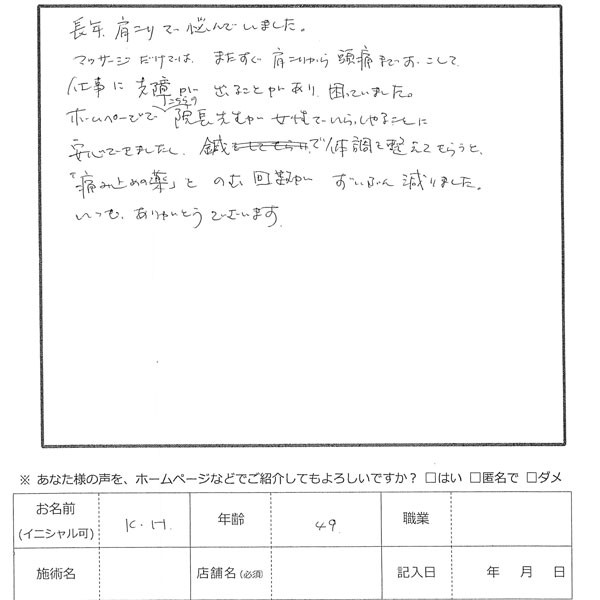 長年、肩こりで悩んでいました。
マッサージだけでは、またすぐ肩こりから頭痛までおこして
仕事に支障が出ることがあり、困っていました。
ホームページでこちらの院長先生が女性でいらっしゃることに
安心できましたし、鍼をしてもらい、で体調を整えてもらうと、
「痛み止めの薬」をのむ回数がずいぶん減りました。
いつも、ありがとうございます。
※ あなた様の声を、ホームページなどでご紹介してもよろしいですか？ □はい □匿名で □ダメ
お名前 (イニシャル可) K.H. 年齢 49 職業
施術名 店舗名(必須) 記入日 年 月 日